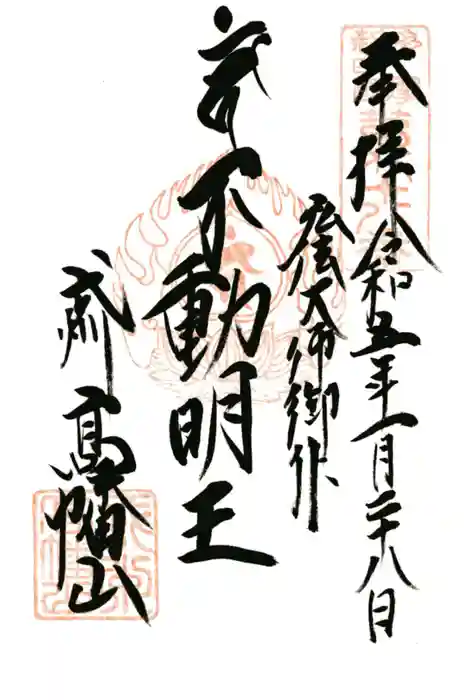 奉拝
令和五年一月二十八日
弘法大師御作
不動明王
武州
高幡山